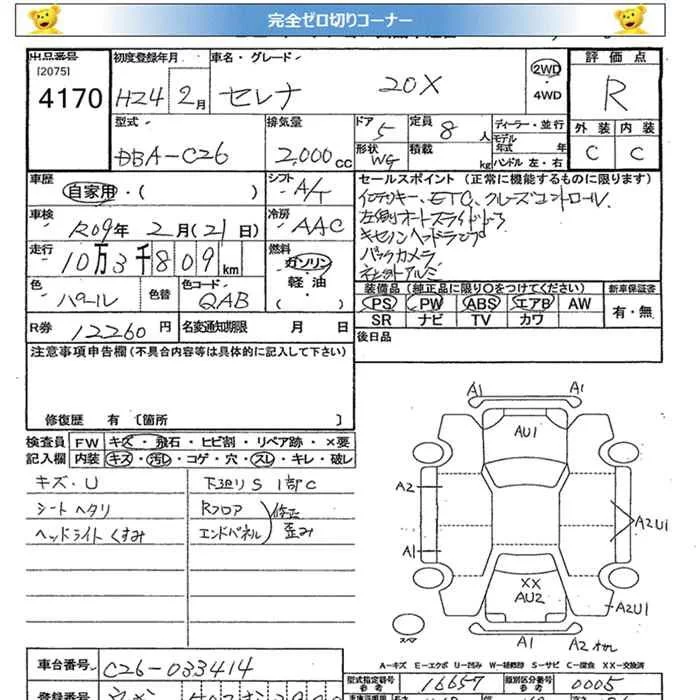 完全ゼロ切りコーナー
出品番号 初度登録年月 車名・グレード 評価点
[2075]
4170 HZ4 2月 セレナ 20X 2WD・4WD R
型式 排気量 ドア 5 定員 8人 ディーラー・並行 外装 内装
モデル年式 年
DBA-C26 2,000cc 形状 WG 積載 kg ハンドル 左・右 C C
車歴 自家用・( ) シフト A/T セールスポイント (正常に機能するものに限ります)
インテリキー、ETC、クルーズコントロール
車検 R09年 2月(21日) 冷房 AAC 左側オートスライドドア
キセノンヘッドランプ
走行 10万3千809km 燃料 ガソリン・軽油・( ) バックカメラ
社外アルミ
色 パール 色替 色コード QAB 装備品 (純正品に限り○をつけてください) 新車保証書
PS PW ABS エアB AW 有・無
R券 12260円 名変通知期限 月 日 SR ナビ TV カワ
注意事項申告欄(不具合内容等は具体的に記入して下さい) 後日品
修復歴 有 〔箇所 〕
検査員 FW キズ・飛石・ヒビ割・リペア跡・×要
記入欄 内装 キズ・汚レ・コゲ・穴・スレ・キレ・破レ
キズ・U 下廻りS 1部C
シートヘタリ Rフロア 修正
ヘッドライトくすみ エンドパネル 歪み
A1 A1
AU1
A2
A2U1
A1
XX
AU2
A2U1
スペア A1 A2
A-キズ E-エクボ U-凹み W-補修跡 S-サビ C-腐食 XX-交換済
車台番号 C26-033414 型式指定番号 参考 16657 類別区分番号 参考 0005
登録番号